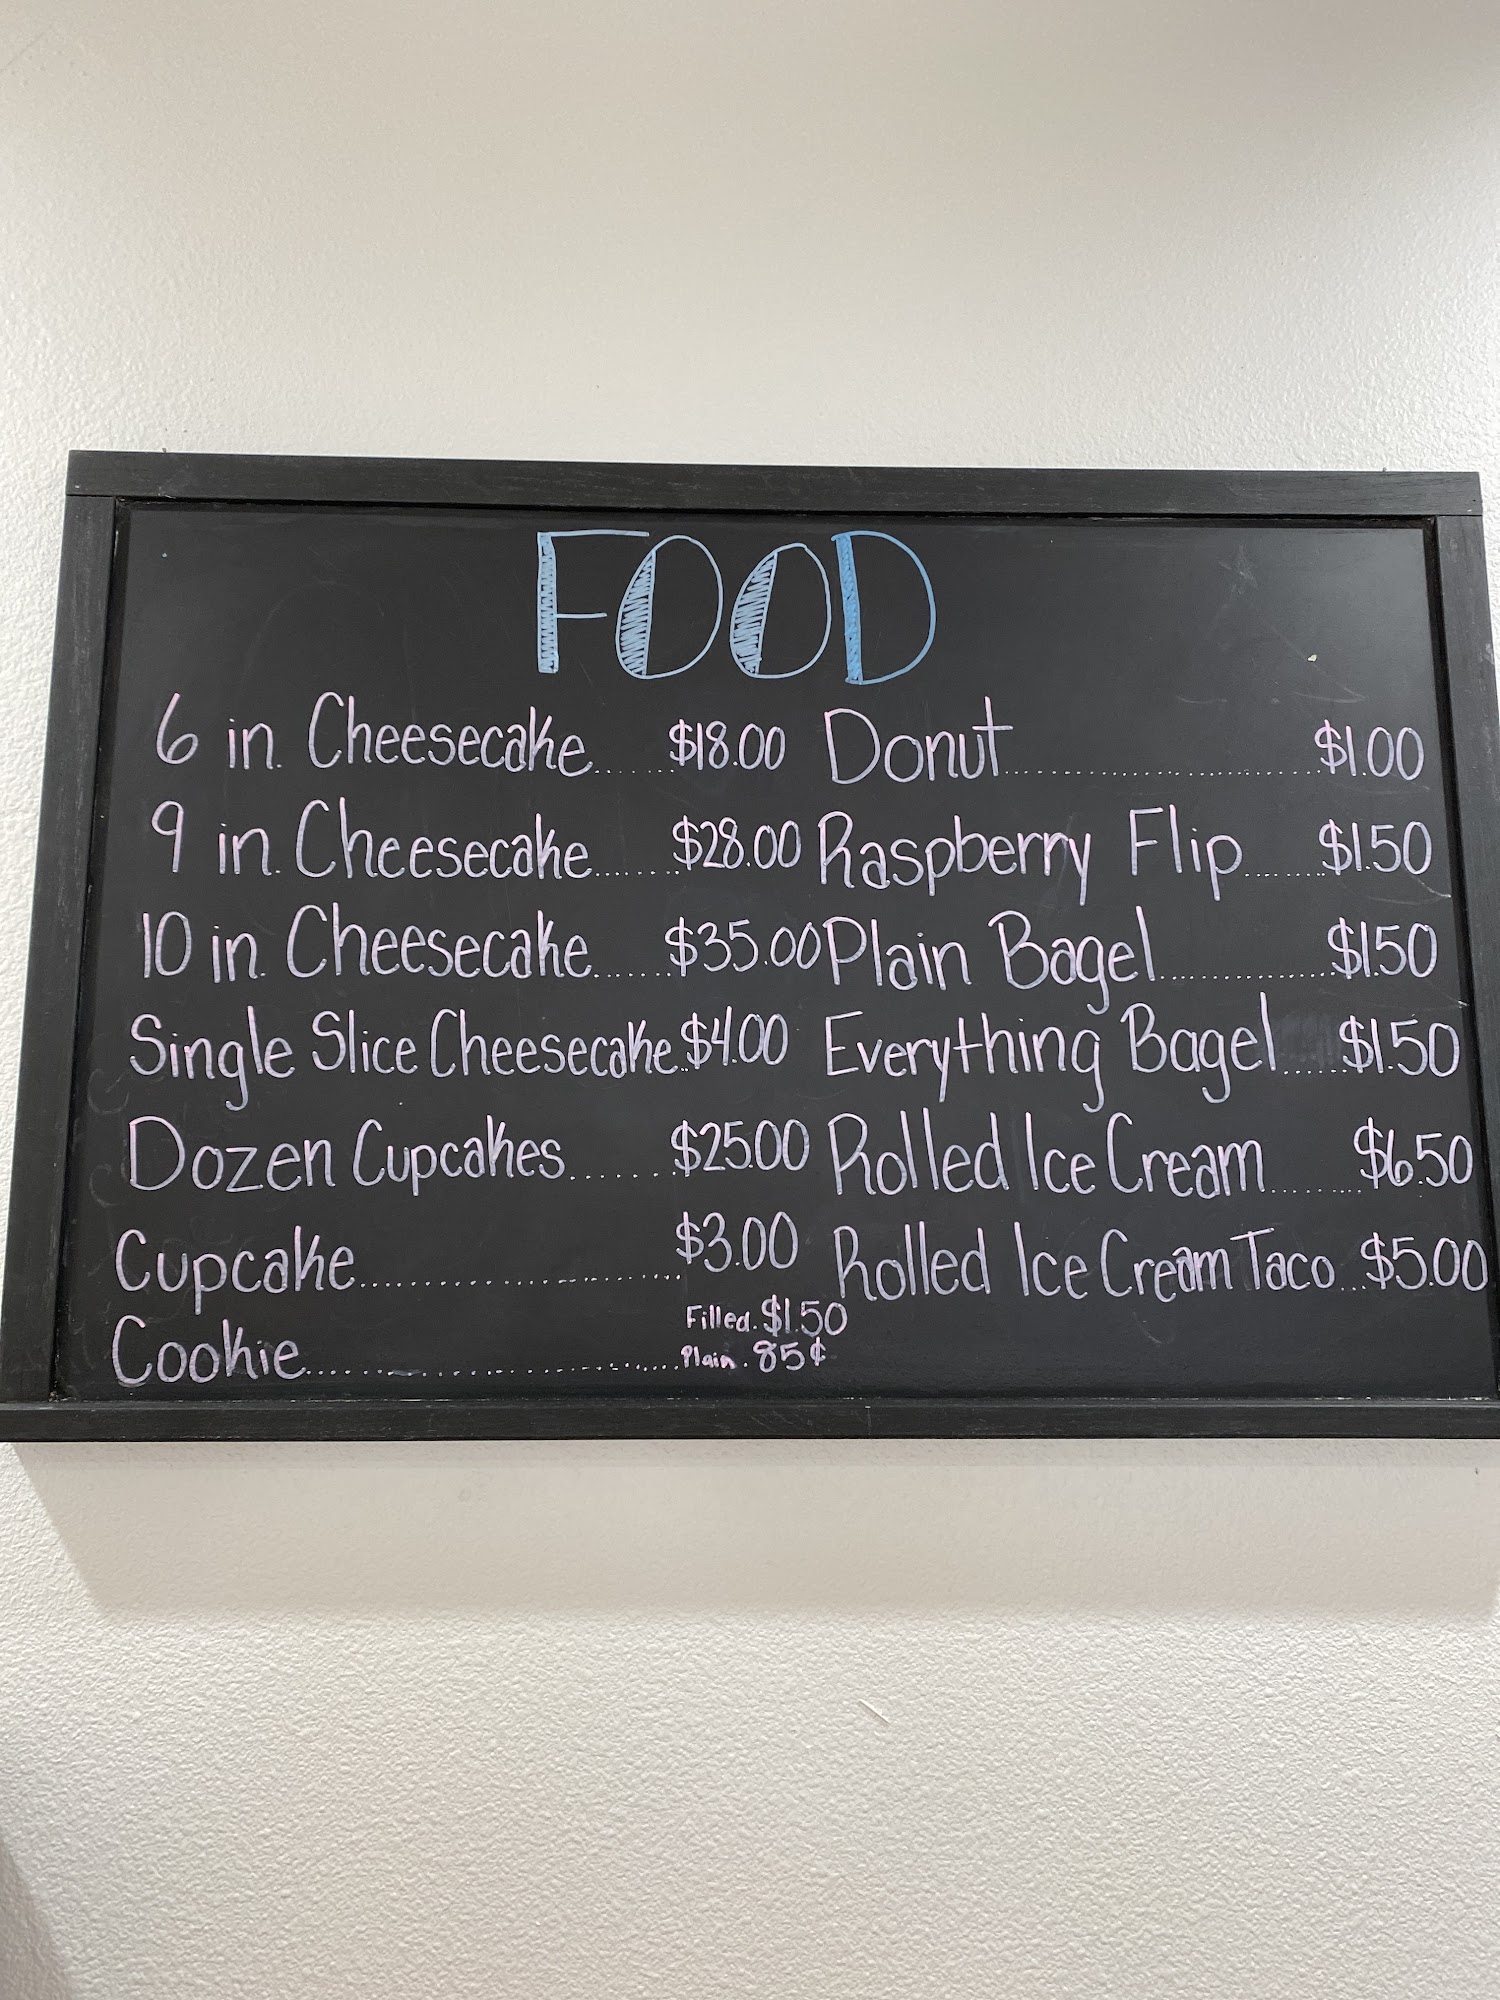 FOOD
6 in. Cheesecake......$18.00
9 in. Cheesecake.......$28.00
10 in. Cheesecake......$35.00
Single Slice Cheesecake..$4.00
Dozen Cupcakes.......$25.00
Cupcake..........................$3.00
Cookie..........................Filled.$1.50
Plain.85¢
Donut..........................$1.00
Raspberry Flip.......$1.50
Plain Bagel..............$1.50
Everything Bagel......$1.50
Rolled Ice Cream........$6.50
Rolled Ice Cream Taco...$5.00